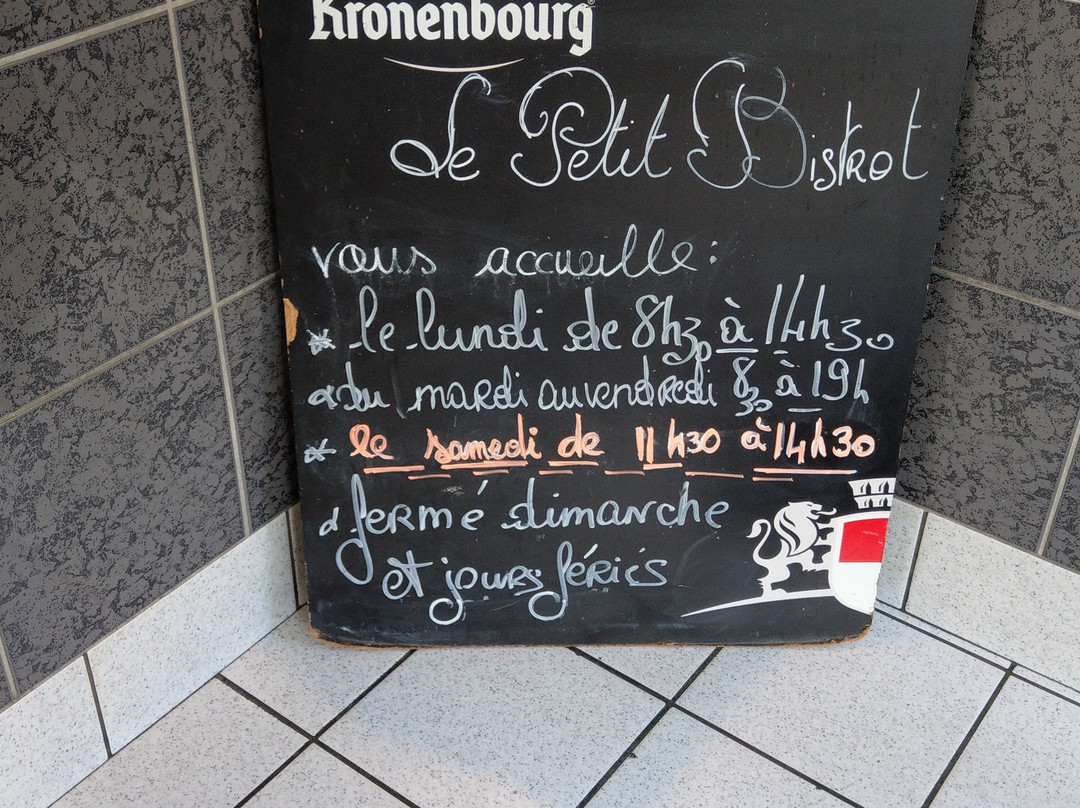 Kronenbourg
Le Petit Bistrot
vous accueille :
* le lundi de 8h30 à 14h30
* du mardi au vendredi 8h30 à 19h
* le samedi de 11h30 à 14h30
* fermé dimanche
et jours fériés